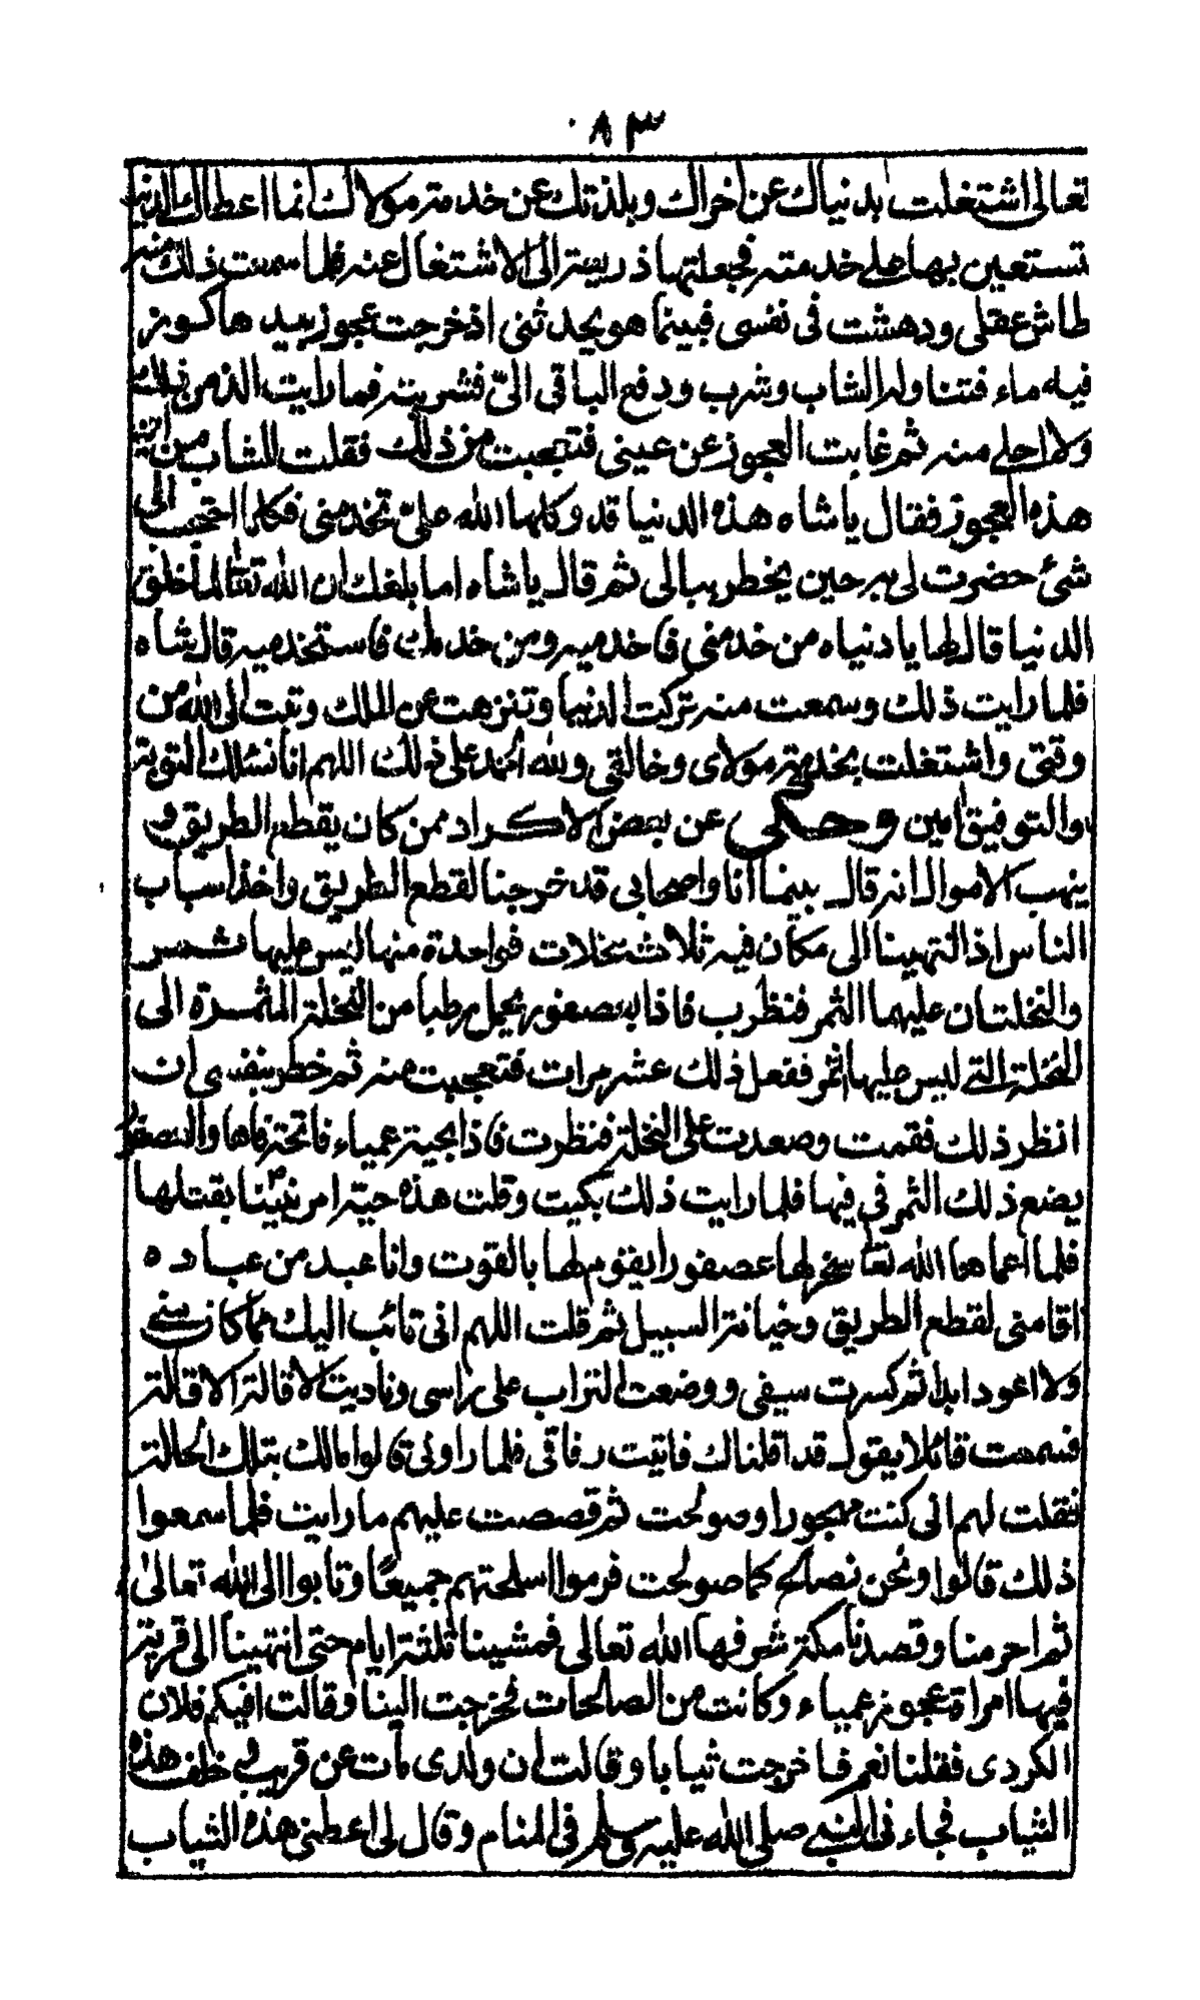 ٨٣
تعالى اشتغلت بدنياك عن اخراك وبلذتك عن خدمة مولاك انما اعطاك الدنيا
تستعين بها على خدمته فجعلتها ذريعة الى الاشتغال عنه فلما سمعت ذلك منه
طاش عقلى ودهشت فى نفسى فبينما هو يحدثنى اذ خرجت عجوز بيدها كوز
فيه ماء فتناوله الشاب وشرب ودفع الباقى الىّ فشربته فما رايت الذ من ذلك
ولا احلى منه ثم غابت العجوز عن عينى فتعجبت من ذلك فقلت للشاب من اين
هذه العجوز فقال يا شاه هذه الدنيا قد وكلها الله علىّ تخدمنى فكلما احتجت الى
شئ حضرت لى به حين يخطر ببالى ثم قال يا شاه اما بلغك ان الله تعالى لما خلق
الدنيا قال لها يا دنياه من خدمنى فاخدميه ومن خدمك فاستخدميه قال شاه
فلما رايت ذلك وسمعت منه تركت الدنيا وتنزهت عن الملك وتبت الى الله من
وقتى واشتغلت بخدمة مولاى وخالقى ولله الحمد على ذلك اللهم انا نسئلك التوبة
والتوفيق امين وحكى عن بعض الاكراد ممن كان يقطع الطريق و
ينهب الاموال انه قال بينما انا واصحابى قد خرجنا لقطع الطريق واخذ اسباب
الناس اذ انتهينا الى مكان فيه ثلاث نخلات فواحدة منها ليس عليها ثمر
والنخلتان عليهما الثمر فنظرت فاذا بعصفور يحمل رطبا من النخلة المثمرة الى
النخلة التى ليس عليها ثمر ففعل ذلك عشر مرات فتعجبت منه ثم خطر بنفسى ان
انظر ذلك فقمت وصعدت على النخلة فنظرت فاذا بحية عمياء فاتحة فاها والعصفور
يضع ذلك الثمر فى فيها فلما رايت ذلك بكيت وقلت هذه حيّة امر نبيّنا بقتلها
فلما اعماها الله تعا سخر لها عصفورا يقوم لها بالقوت وانا عبد من عباده
اقامنى لقطع الطريق وخيانة السبيل ثم قلت اللهم انى تائب اليك مما كان منى
ولا اعود ابدا ثم كسرت سيفى ووضعت التراب على راسى وناديت الاقالة الاقالة
فسمعت قائلا يقول قد اقلناك فاتيت رفاقى فلما راونى قالوا مالك بتلك الحالة
فقلت لهم انى كنت مهجورا وصولحت ثم قصصت عليهم ما رايت فلما سمعوا
ذلك قالوا ونحن نصالح كما صولحت فرموا اسلحتهم جميعًا وتابوا الى الله تعالىٰ
ثم احرمنا وقصدنا مكة شرفها الله تعالى فمشينا ثلثة ايام حتى انتهينا الى قرية
فيها امراة عجوز عمياء وكانت من الصالحات فخرجت الينا وقالت افيكم فلان
الكردى فقلنا نعم فاخرجت ثيابا وقالت ان ولدى مات عن قريب وخلف هذه
الثياب فجاءنى النبى صلى الله عليه وسلم فى المنام وقال لى اعطى هذه الثياب